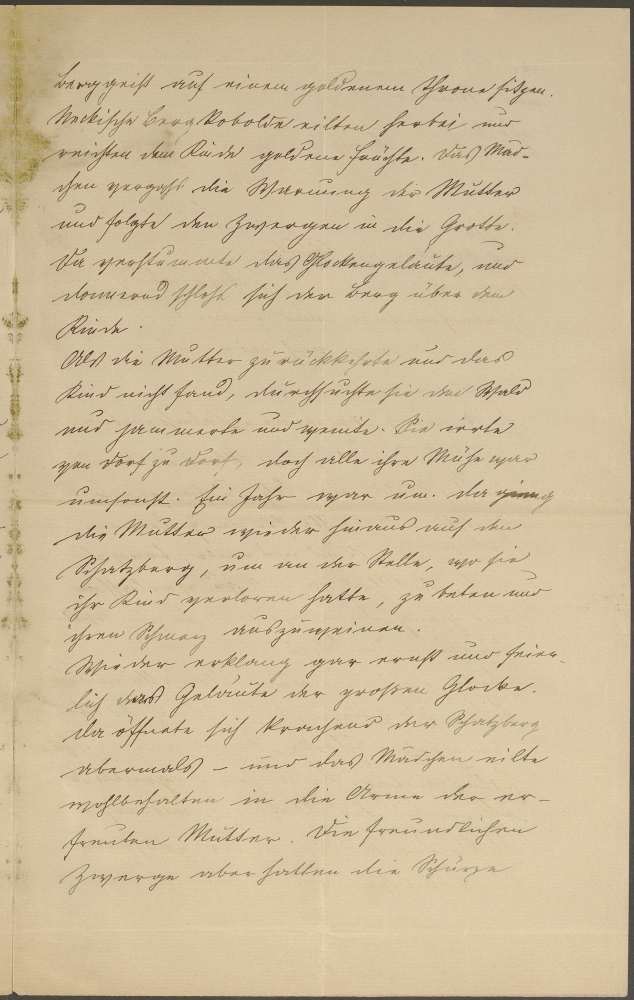 Berggeist auf einem goldenem Throne sitzen.
Neckische Bergkobolde eilten herbei und
reichten dem Kinde goldene Früchte. Das Mäd-
chen vergaß die Warnung der Mutter
und folgte den Zwergen in die Grotte.
Da verstummte das Glockengeläute, und
donnernd schloß sich der Berg über dem
Kinde.
Als die Mutter zurückkehrte und das
Kind nicht fand, durchsuchte sie den Wald
und jammerte und weinte. Sie irrte
von Dorf zu Dorf, doch alle ihre Mühe war
umsonst. Ein Jahr war um. Da ging
die Mutter wieder hinaus auf den
Schatzberg, um an der Stelle, wo sie
ihr Kind verloren hatte, zu beten und
ihren Schmerz auszuweinen.
Wieder erklang gar ernst und feier-
lich das Geläute der großen Glocke.
Da öffnete sich krachend der Schatzberg
abermals – und das Mädchen eilte
wohlbehalten in die Arme der er-
freuten Mutter. Die freundlichen
Zwerge aber hatten die Schürze